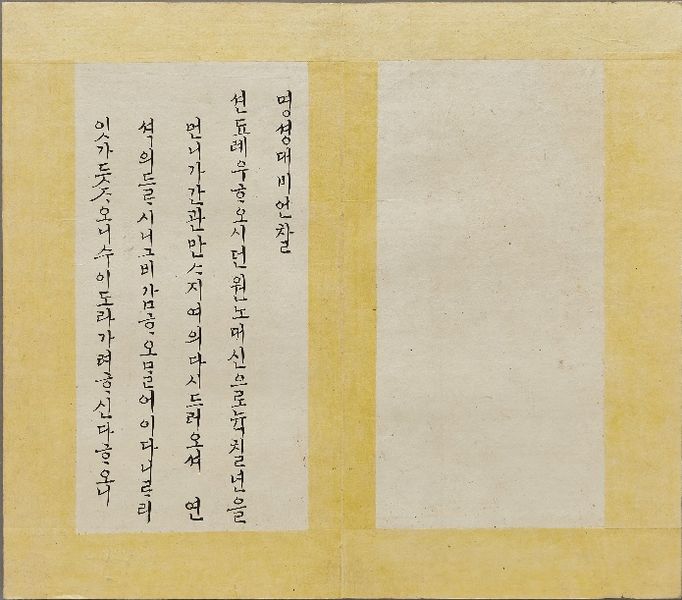 명셩대비언찰
션됴례우ᄒᆞ오시던원노대신으로뉵칠년을
먼니가간관만ᄉᆞ지여의다시드러오셔 연
셕의드르시니그비감ᄒᆞ오믈어이다니ᄅᆞ리
잇가듯ᄌᆞ오니수이도라가려ᄒᆞ신다ᄒᆞ오니